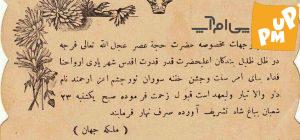 پی ام آپ
PMUP
جهات مخصوصه حضرت حجة عصر عجل الله تعالی فرجه
در ظل ظلیل بندگان اعلیحضرت قدر قدرت اقدس شهریاری ارواحنا
فداه سای امر سنت وجشن ختنه سوران نورچشم اعز ارجمند نام
دار والا تبار ولیعهد است قبول زحمت فرموده صبح یکشنبه ۲۳
شعبان بباغ شاه تشریف آورده صرف نهار فرمایند
( ملکه جهان )